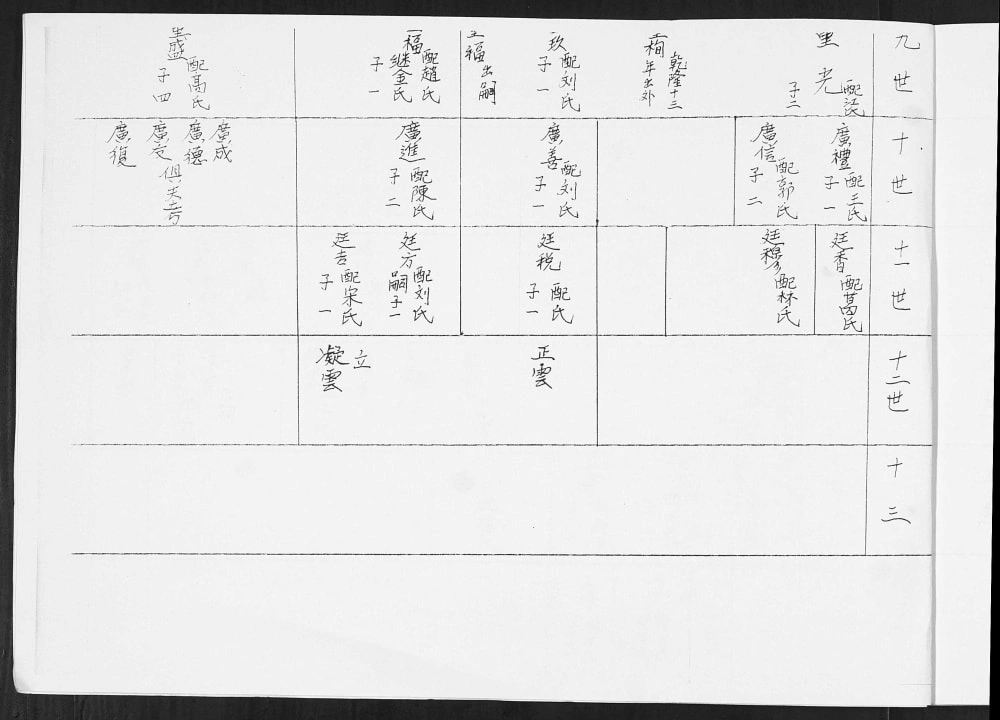 九世
光
配氏
子二
乾隆十三
年出外
配刘氏
子一
福出嗣
福
配趙氏
継金氏
子一
盛
配高氏
子四
十世
廣禮
配王氏
子一
廣信
配郭氏
子二
廣善
配刘氏
子一
廣進
配陳氏
子二
廣成
廣德
廣文
廣復
俱夭亡
十一世
廷香
配葛氏
廷穆
配林氏
廷税
配氏
子一
廷方
配刘氏
嗣子一
廷吉
配宋氏
子一
十二世
正雲
立
凝雲
十三